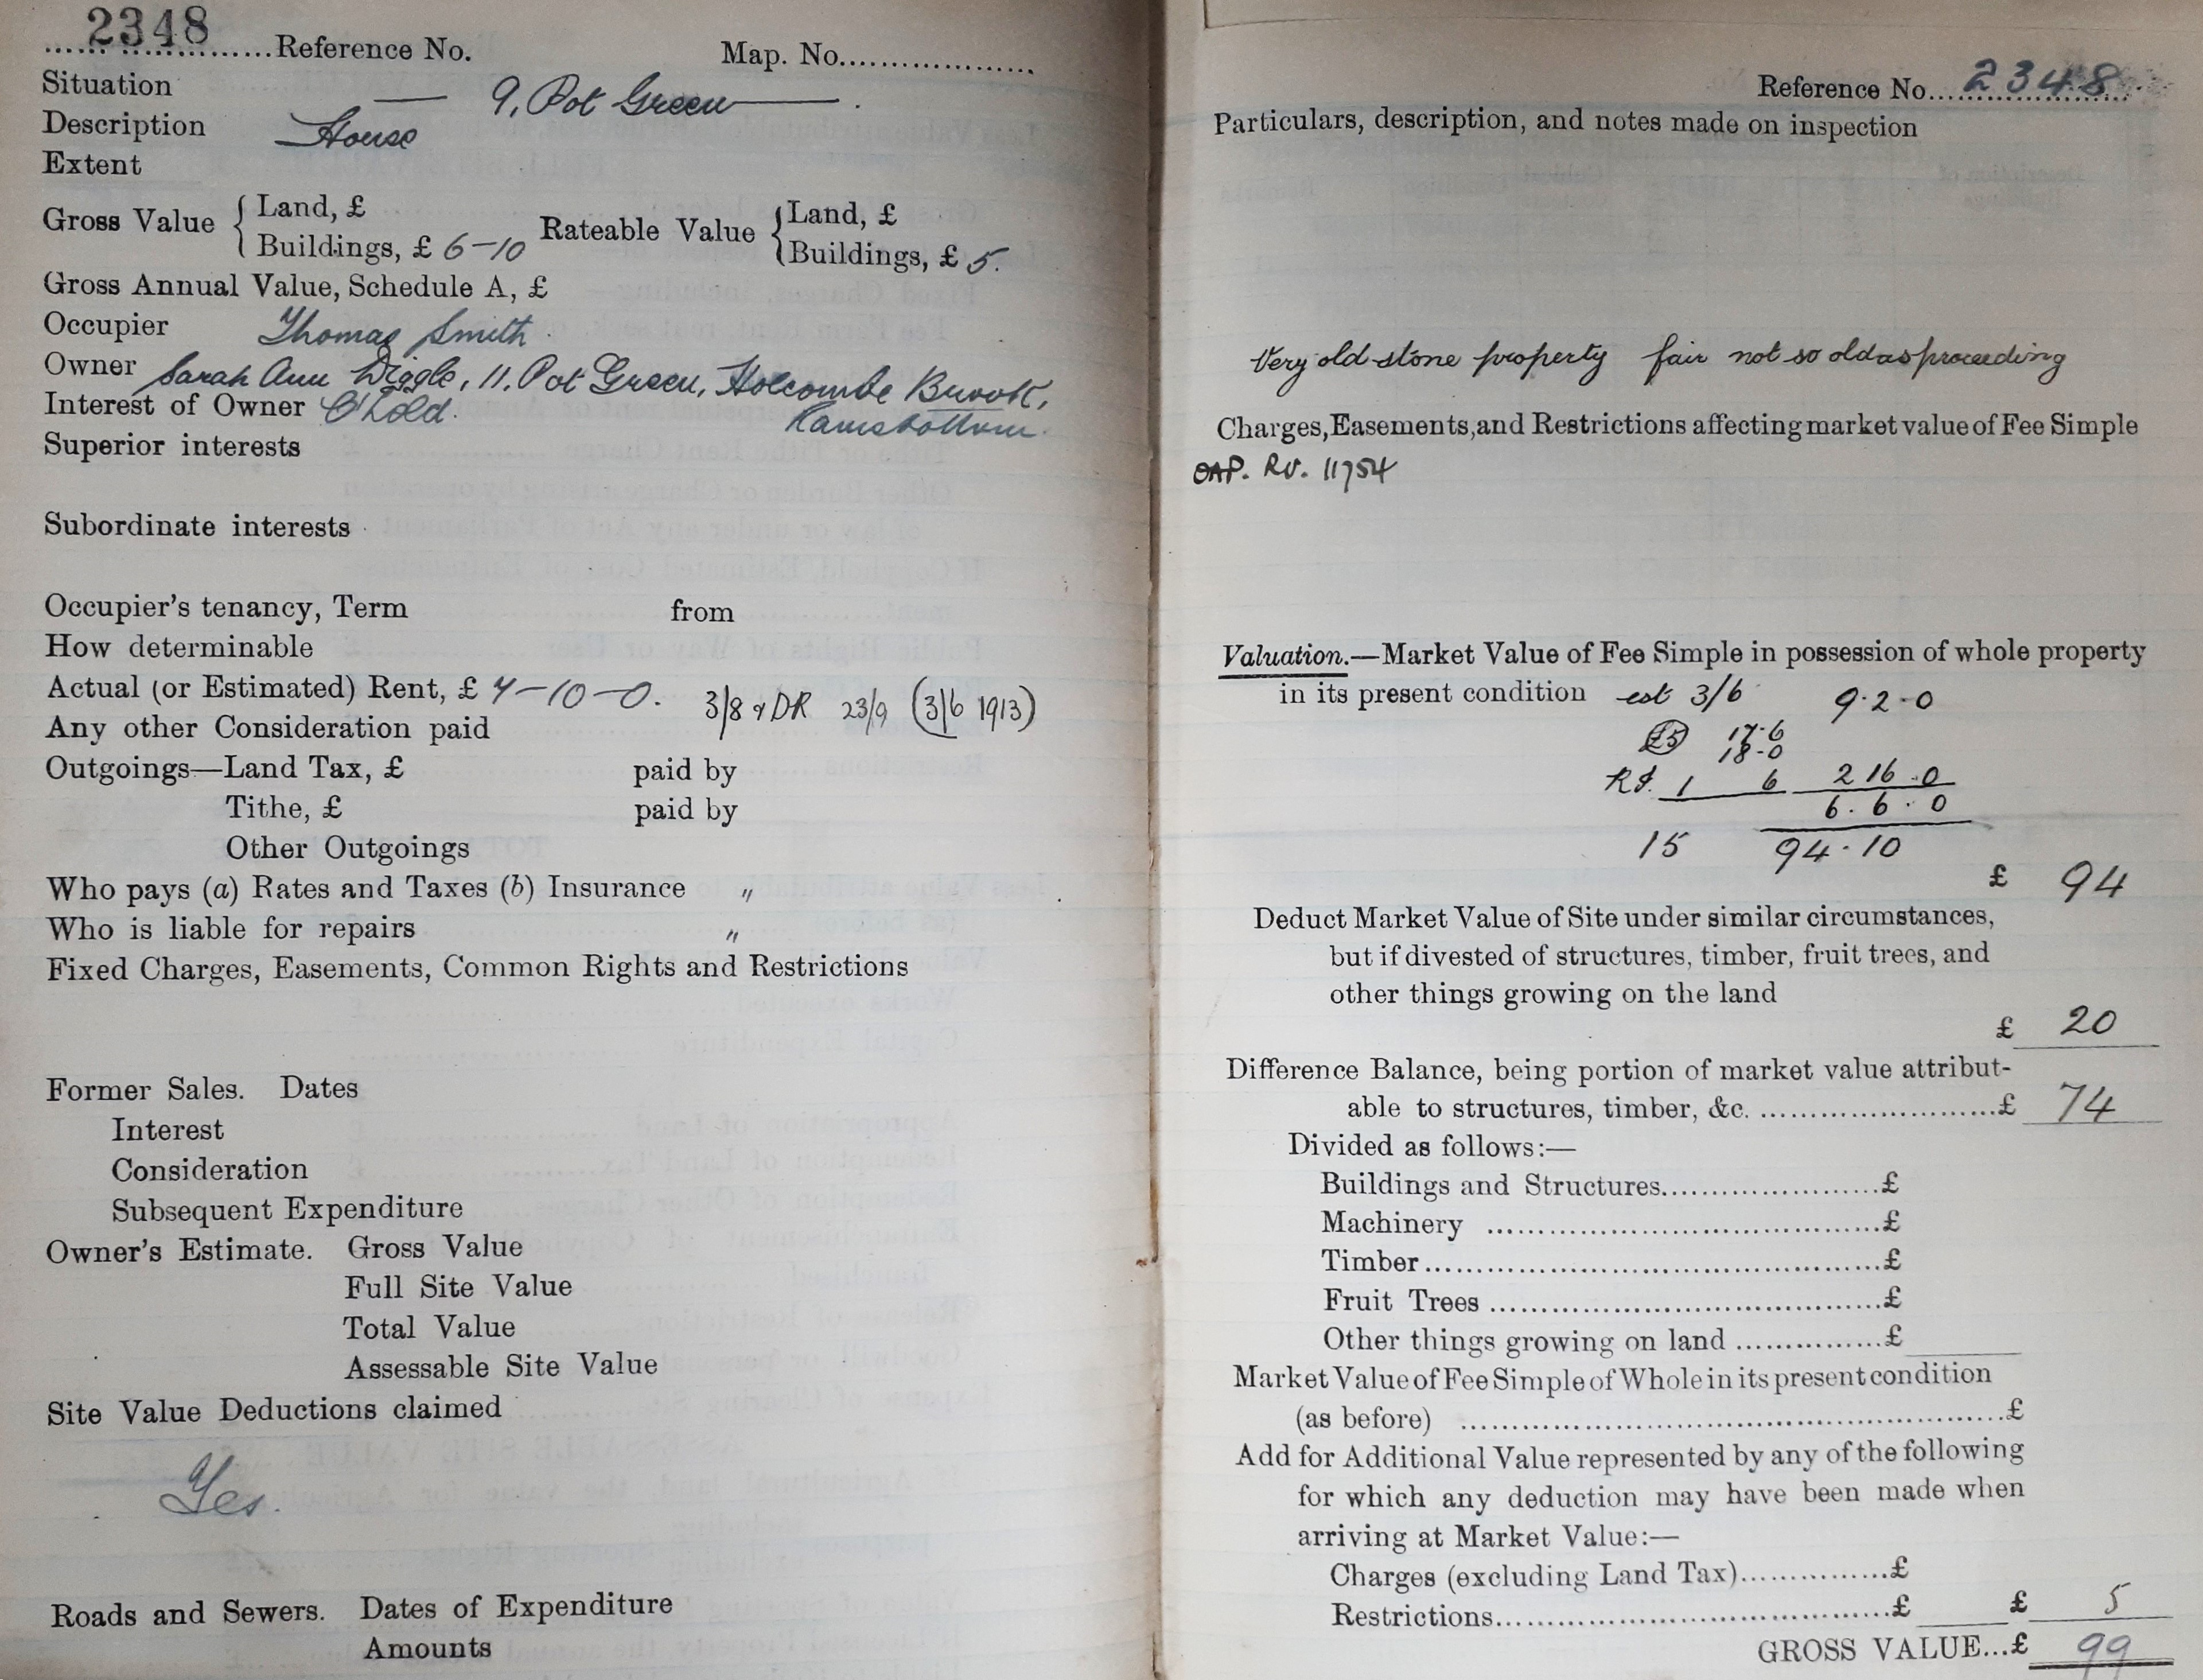 2348
Reference No. Map. No.
Situation — 9, Pot Green — .
Description House
Extent
Gross Value { Land, £
Buildings, £ 6-10 Rateable Value { Land, £
Buildings, £ 5.
Gross Annual Value, Schedule A, £
Occupier Thomas Smith
Owner Sarah Ann Diggle, 11, Pot Green, Holcombe Brook,
Ramsbottom.
Interest of Owner C'hold.
Superior interests
Subordinate interests
Occupier's tenancy, Term from
How determinable
Actual (or Estimated) Rent, £ 7-10-0. 3/8 & DR 23/9 (3/6 1913)
Any other Consideration paid
Outgoings—Land Tax, £ paid by
Tithe, £ paid by
Other Outgoings
Who pays (a) Rates and Taxes (b) Insurance "
Who is liable for repairs "
Fixed Charges, Easements, Common Rights and Restrictions
Former Sales. Dates
Interest
Consideration
Subsequent Expenditure
Owner's Estimate. Gross Value
Full Site Value
Total Value
Assessable Site Value
Site Value Deductions claimed
Yes.
Roads and Sewers. Dates of Expenditure
Amounts
Reference No. 2348
Particulars, description, and notes made on inspection
Very old stone property fair not so old as proceeding
Charges, Easements, and Restrictions affecting market value of Fee Simple
OAP. RV. 11754
Valuation.—Market Value of Fee Simple in possession of whole property
in its present condition est 3/6 9.2.0
£5 17-6
18-0
1 6 2 16.0
6.6.0
15 94.10
£ 94
Deduct Market Value of Site under similar circumstances,
but if divested of structures, timber, fruit trees, and
other things growing on the land
£ 20
Difference Balance, being portion of market value attribut-
able to structures, timber, &c. £ 74
Divided as follows:—
Buildings and Structures £
Machinery £
Timber £
Fruit Trees £
Other things growing on land £
Market Value of Fee Simple of Whole in its present condition
(as before) £
Add for Additional Value represented by any of the following
for which any deduction may have been made when
arriving at Market Value:—
Charges (excluding Land Tax) £
Restrictions £ £ 5
GROSS VALUE...£ 99